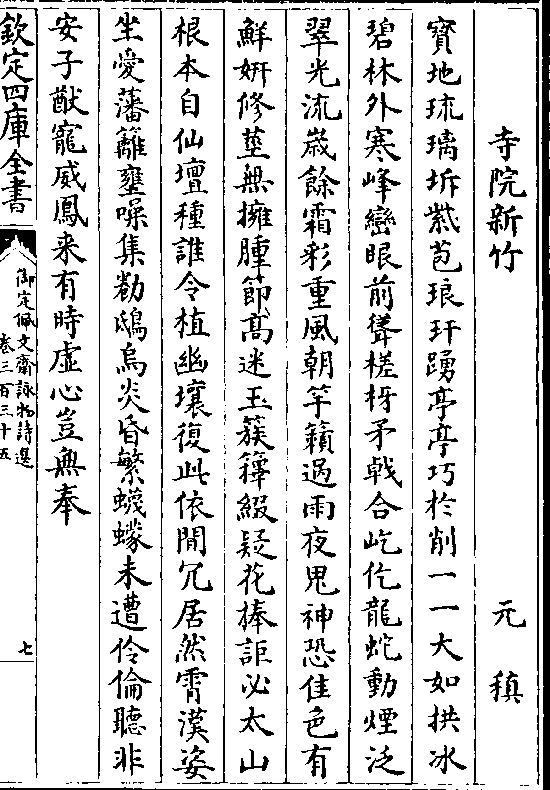 寺院新竹　元稹
寶地琉璃坼紫苞琅玕踴亭亭巧於削一一大如拱冰
碧林外寒峰巒眼前聳槎枒矛戟合屹仡龍蛇動煙泛
翠光流歲餘霜彩重風朝竽籟過雨夜鬼神恐佳色有
鮮妍修莖無擁腫節高迷玉簇籜綴疑花捧詎必太山
根本自仙壇種誰令植幽壤復此依閒冗居然霄漢姿
坐愛藩籬壅噪集勸鴟烏炎昏繁蠛蠓未遭伶倫聽非
安子猷寵威鳳来有時虛心豈無奉
欽定四庫全書
御定佩文齋詠物詩選
卷三百三十五
七